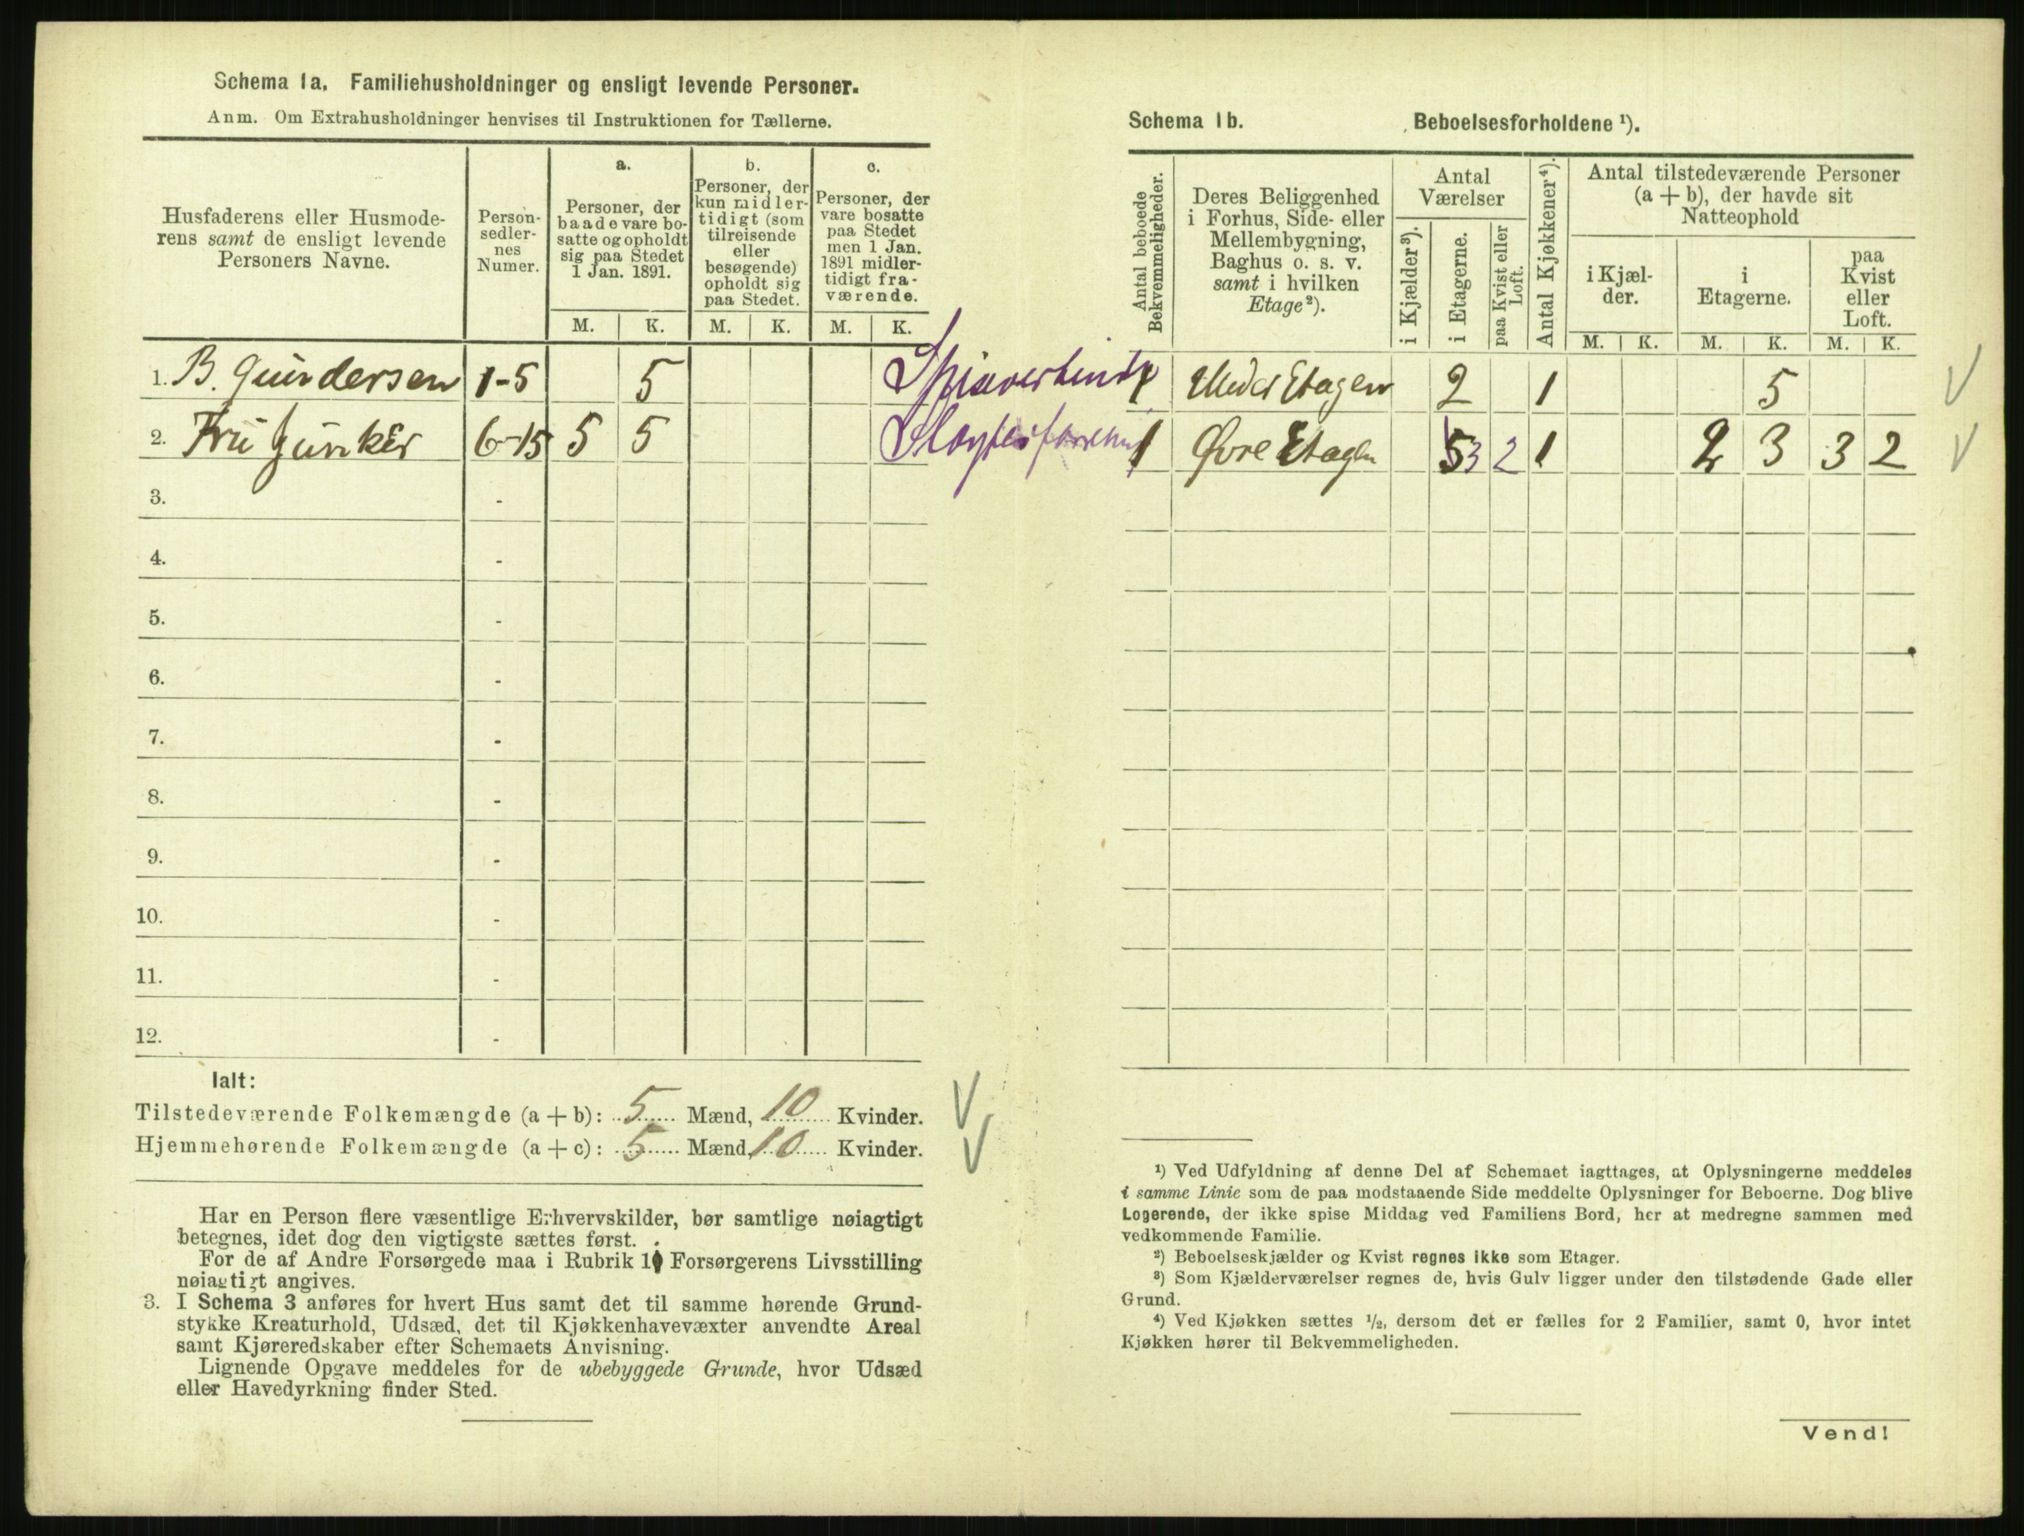 Schema 1a. Familiehusholdninger og ensligt levende Personer.
Anm. Om Extrahusholdninger henvises til Instruktionen for Tællerne.
Husfaderens eller Husmode-
rens samt de ensligt levende
Personers Navne.
Person-
sedler-
nes
Numer.
a.
Personer, der
baade vare bo-
satte og opholdt
sig paa Stedet
1 Jan. 1891.
b.
Personer, der
kun midler-
tidigt (som
tilreisende
eller
besøgende)
opholdt sig
paa Stedet.
c.
Personer, der
vare bosatte
paa Stedet
men 1 Jan.
1891 midler-
tidigt fra-
værende.
M. K. M. K. M. K.
1. B. Gundersen 1-5 5
2. Fru Junker 6-15 5 5
3. -
4. -
5. -
6. -
7. -
8. -
9. -
10. -
11. -
12. -
Ialt:
Tilstedeværende Folkemængde (a + b): 5 Mænd, 10 Kvinder.
Hjemmehørende Folkemængde (a + c): 5 Mænd, 10 Kvinder.
Har en Person flere væsentlige Erhvervskilder, bør samtlige nøiagtigt
betegnes, idet dog den vigtigste sættes først.
For de af Andre Forsørgede maa i Rubrik 10 Forsørgerens Livsstilling
nøiagtigt angives.
3. I Schema 3 anføres for hvert Hus samt det til samme hørende Grund-
stykke Kreaturhold, Udsæd, det til Kjøkkenhavevæxter anvendte Areal
samt Kjøreredskaber efter Schemaets Anvisning.
Lignende Opgave meddeles for de ubebyggede Grunde, hvor Udsæd
eller Havedyrkning finder Sted.
Schema 1b. Beboelsesforholdene ¹).
Antal beboede
Bekvemmeligheder.
Deres Beliggenhed
i Forhus, Side- eller
Mellembygning,
Baghus o. s. v.
samt i hvilken
Etage ²).
Antal
Værelser
i Kjælder ³).
i Etagerne.
paa Kvist eller
Loft.
Antal Kjøkkener ⁴).
Antal tilstedeværende Personer
(a + b), der havde sit
Natteophold
i Kjæl-
der.
i
Etagerne.
paa
Kvist
eller
Loft.
M. K. M. K. M. K.
1 Under Etagen 2 1 5
1 Øvre Etagen 5 3 2 1 2 3 3 2
¹) Ved Udfyldning af denne Del af Schemaet iagttages, at Oplysningerne meddeles
i samme Linie som de paa modstaaende Side meddelte Oplysninger for Beboerne. Dog blive
Logerende, der ikke spise Middag ved Familiens Bord, her at medregne sammen med
vedkommende Familie.
²) Beboelseskjælder og Kvist regnes ikke som Etager.
³) Som Kjælderværelser regnes de, hvis Gulv ligger under den tilstødende Gade eller
Grund.
⁴) Ved Kjøkken sættes ½, dersom det er fælles for 2 Familier, samt 0, hvor intet
Kjøkken hører til Bekvemmeligheden.
Vend!